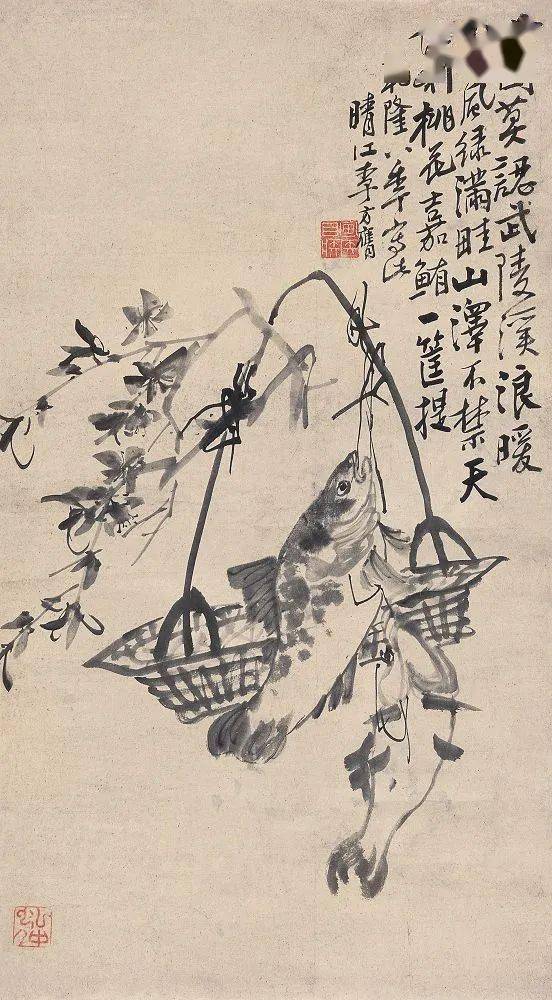 莫認武陵溪浪暖
風綠滿畦山澤不禁天
桃花嘉鮪一筐提
乾隆八年寫此
晴江李方膺